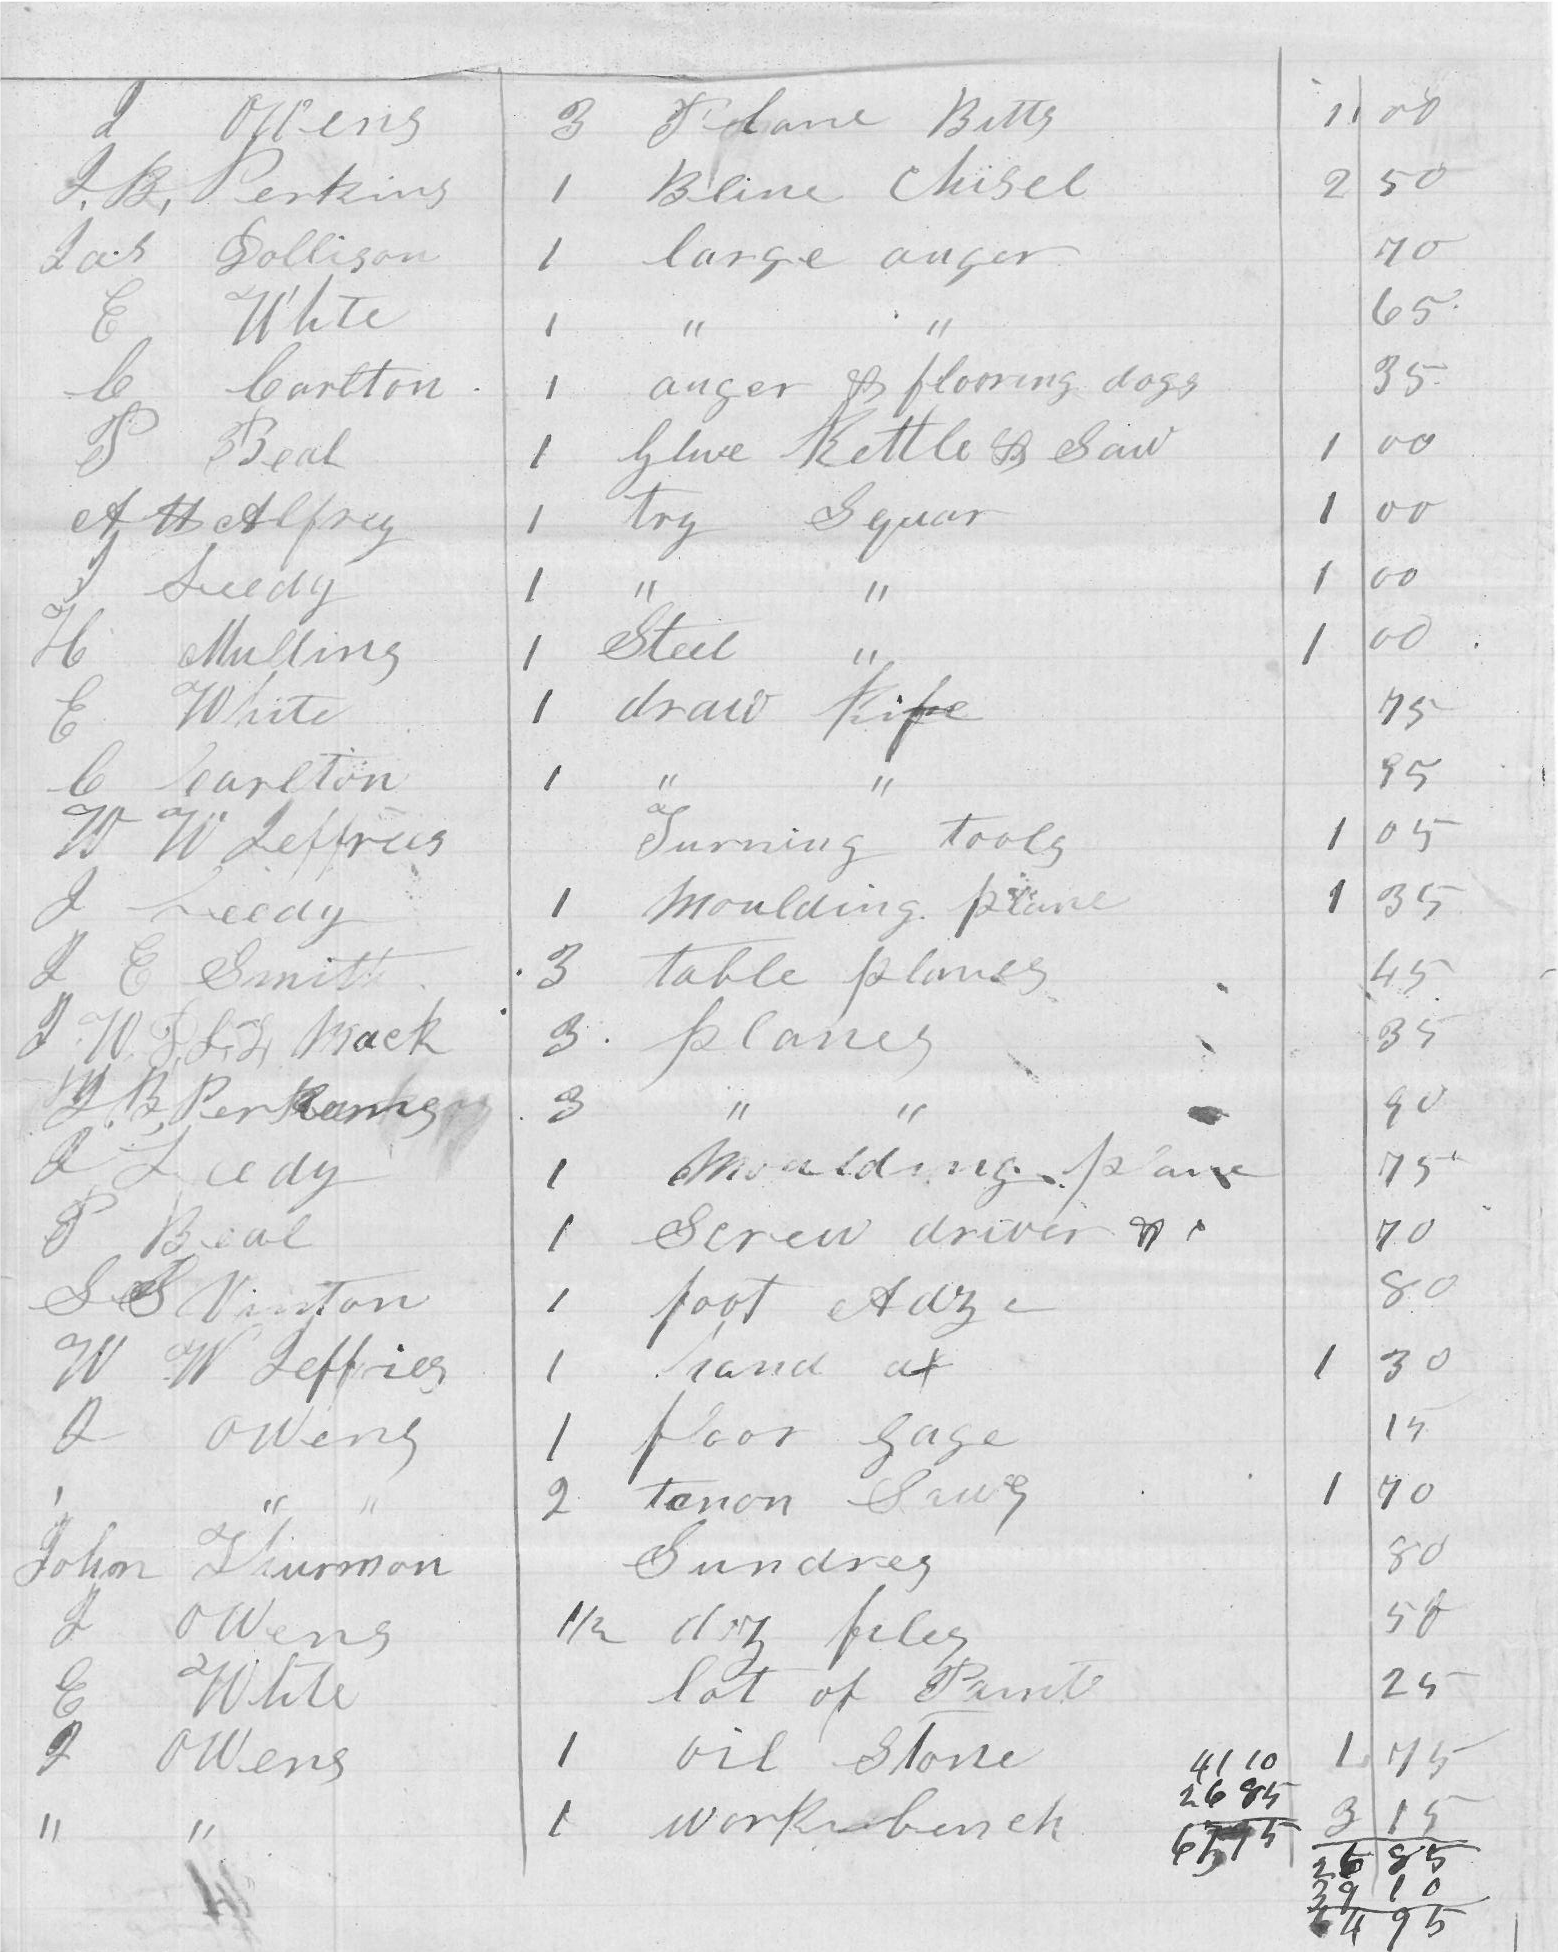 J Owens 3 Plane Bitts 1 00
J. B. Perkins 1 Bline Chisel 2 50
Jas Gollison 1 large auger 70
E White 1 " " 65
C Carlton 1 auger & flooring dogs 35
P Beal 1 Glue Kettle & Saw 1 00
A H Alfrey 1 try Squar 1 00
J Leedy 1 " " 1 00
H Mullins 1 Steel " 1 00
E White 1 draw Kife 75
C Carlton 1 " " 95
W W Jeffries Turning tools 1 05
J Leedy 1 Moulding plane 1 35
J E Smith 3 table planes 45
J W Mack 3 planes 35
J. B. Perkins 3 " " 90
J Leedy 1 Moulding plane 75
P Beal 1 Screw driver & 70
S S Vinton 1 foot Adze 80
W W Jeffries 1 hand ax 1 30
J Owens 1 floor gage 15
" " 2 tenon Saws 1 70
John Thurmon Sundres 80
J Owens 1 1/2 doz files 50
E White lot of Paints 25
J Owens 1 oil stone 1 75
" " 1 work bench 3 15
41 10
26 85
26 85
39 10
64 95